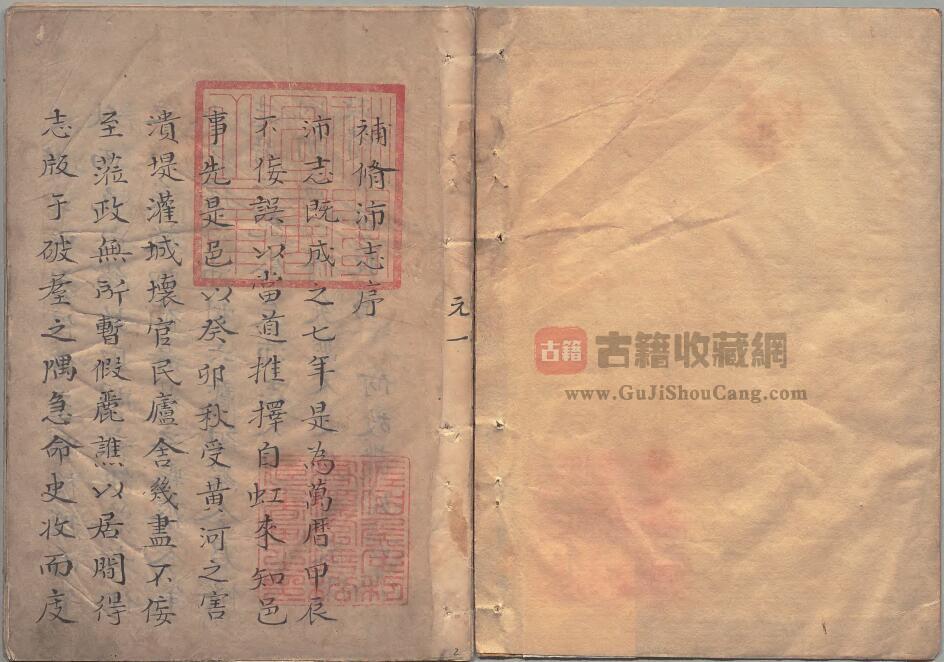 補脩沛志序
沛志既成之七年是為萬曆甲辰
不佞誤以當道推擇自虹來知邑
事先是邑以癸卯秋受黃河之害
潰堤灌城壞官民廬舍幾盡不佞
至蒞政無所暫假麗譙以居間得
志版于破屋之隅急命史收而庋
元一
2
古籍
古籍收藏網
www.GuJiShouCang.com